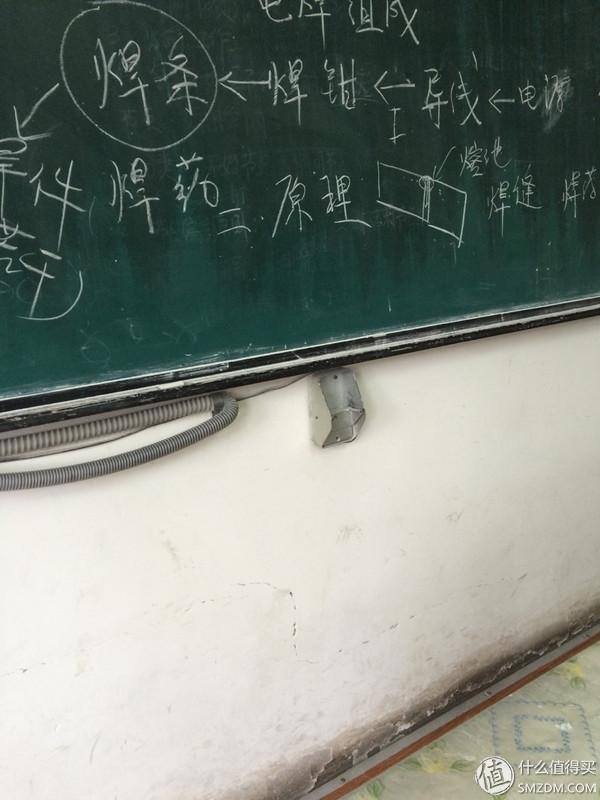 电焊组成
焊条 ← 焊钳 ← 导线 ← 电源
工
件 焊药 二.原理 熔池
焊缝 焊
什么值得买
SMZDM.COM